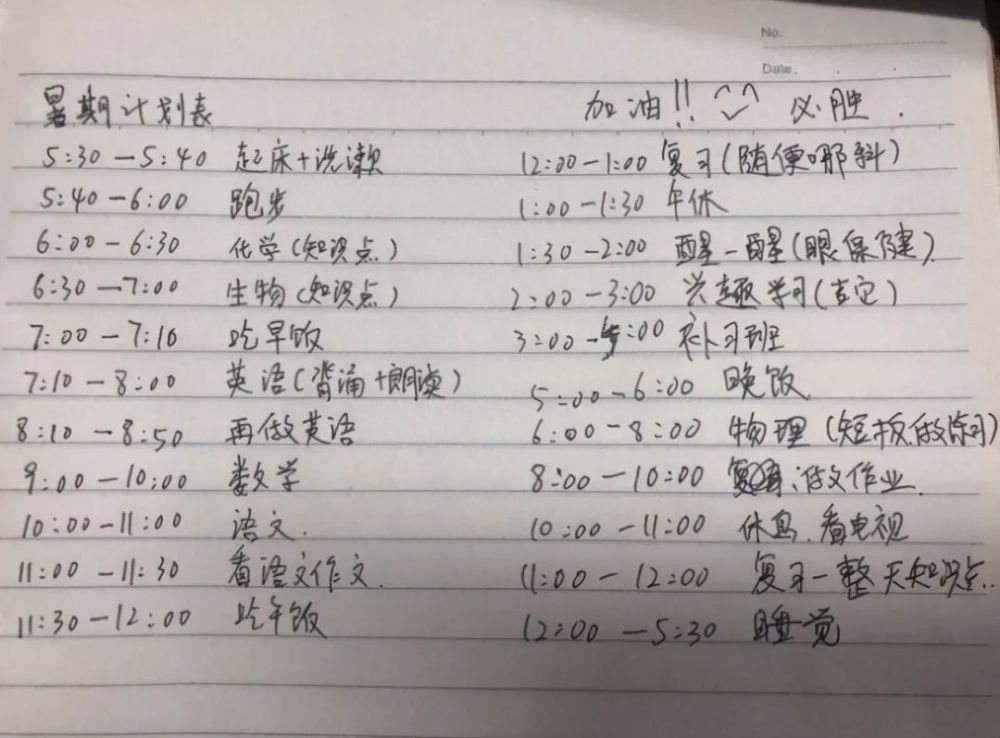 No.
Date.
暑期计划表
加油!! 必胜.
5:30-5:40 起床+洗漱
5:40-6:00 跑步
6:00-6:30 化学(知识点)
6:30-7:00 生物(知识点)
7:00-7:10 吃早饭
7:10-8:00 英语(背诵+朗读)
8:10-8:50 再做英语
9:00-10:00 数学
10:00-11:00 语文.
11:00-11:30 看语文作文.
11:30-12:00 吃午饭
12:00-1:00 复习(随便哪科)
1:00-1:30 午休
1:30-2:00 醒一醒(眼保健)
2:00-3:00 兴趣学习(吉它)
3:00-5:00 补习班
5:00-6:00 晚饭.
6:00-8:00 物理(短板.做练习)
8:00-10:00 、做作业.
10:00-11:00 休息.看电视
11:00-12:00 复习一整天知识点..
12:00-5:30 睡觉